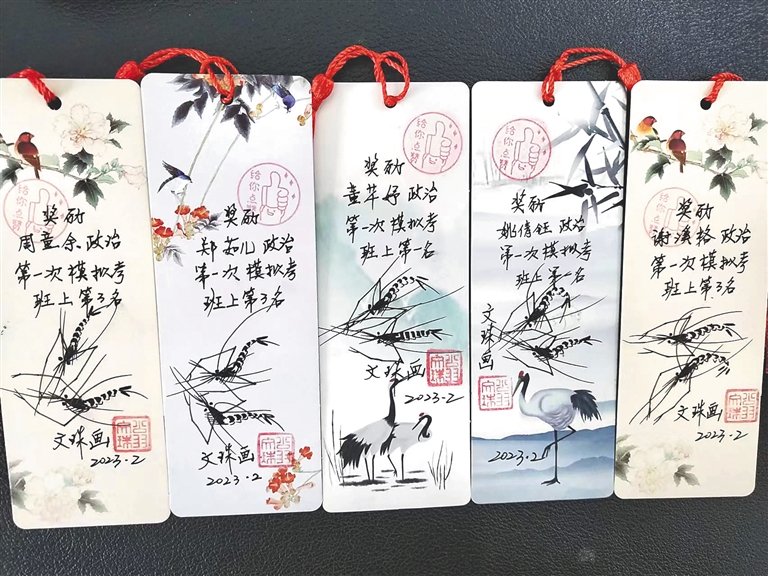 给你点赞
奖励
周童余 政治
第一次模拟考
班上第3名
文珠画
2023.2
给你点赞
奖励
郑茹儿 政治
第一次模拟考
班上第3名
文珠画
2023.2
给你点赞
奖励
童芊妤 政治
第一次模拟考
班上第一名
文珠画
2023.2
给你点赞
奖励
姚倩钰 政治
第一次模拟考
班上第一名
文珠画
2023.2
给你点赞
奖励
谢溪格 政治
第一次模拟考
班上第3名
文珠画
2023.2